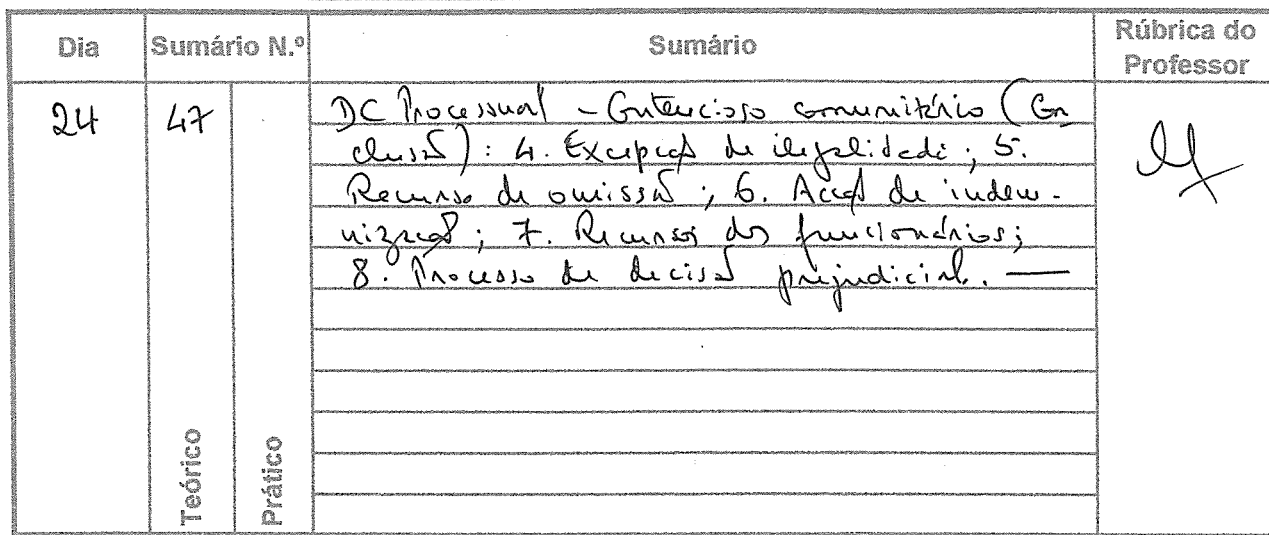 Dia Sumário N.º Sumário Rúbrica do Professor
24 47
DC Processual - Contencioso comunitário (Con
clusão): 4. Excepção de ilegalidade; 5.
Recurso de omissão; 6. Acção de indem-
nização; 7. Recursos dos funcionários;
8. Processo de decisão prejudicial. —
Teórico
Prático